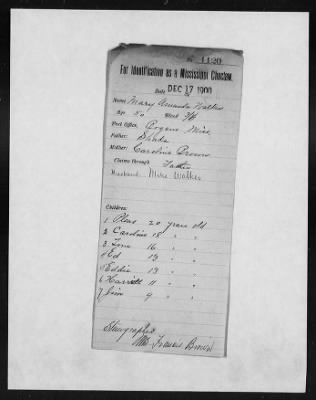 For Identification as a Mississippi Choctaw.
Date DEC 17 1900
Name Mary Amanda Walker
Age 50 Blood
Post Office, Miss
Father:
Mother: Caroline Brown
Claims Through Father
Husband. Mike Walker
Children:
1 Pleas 20 years old
2 Caroline 18 " "
3 16 " "
4 Ed 13 " "
5 Eddie 13 " "
6 Harriett 11 " "
7 Jim 9 " "
Stenographer
Francis Brown